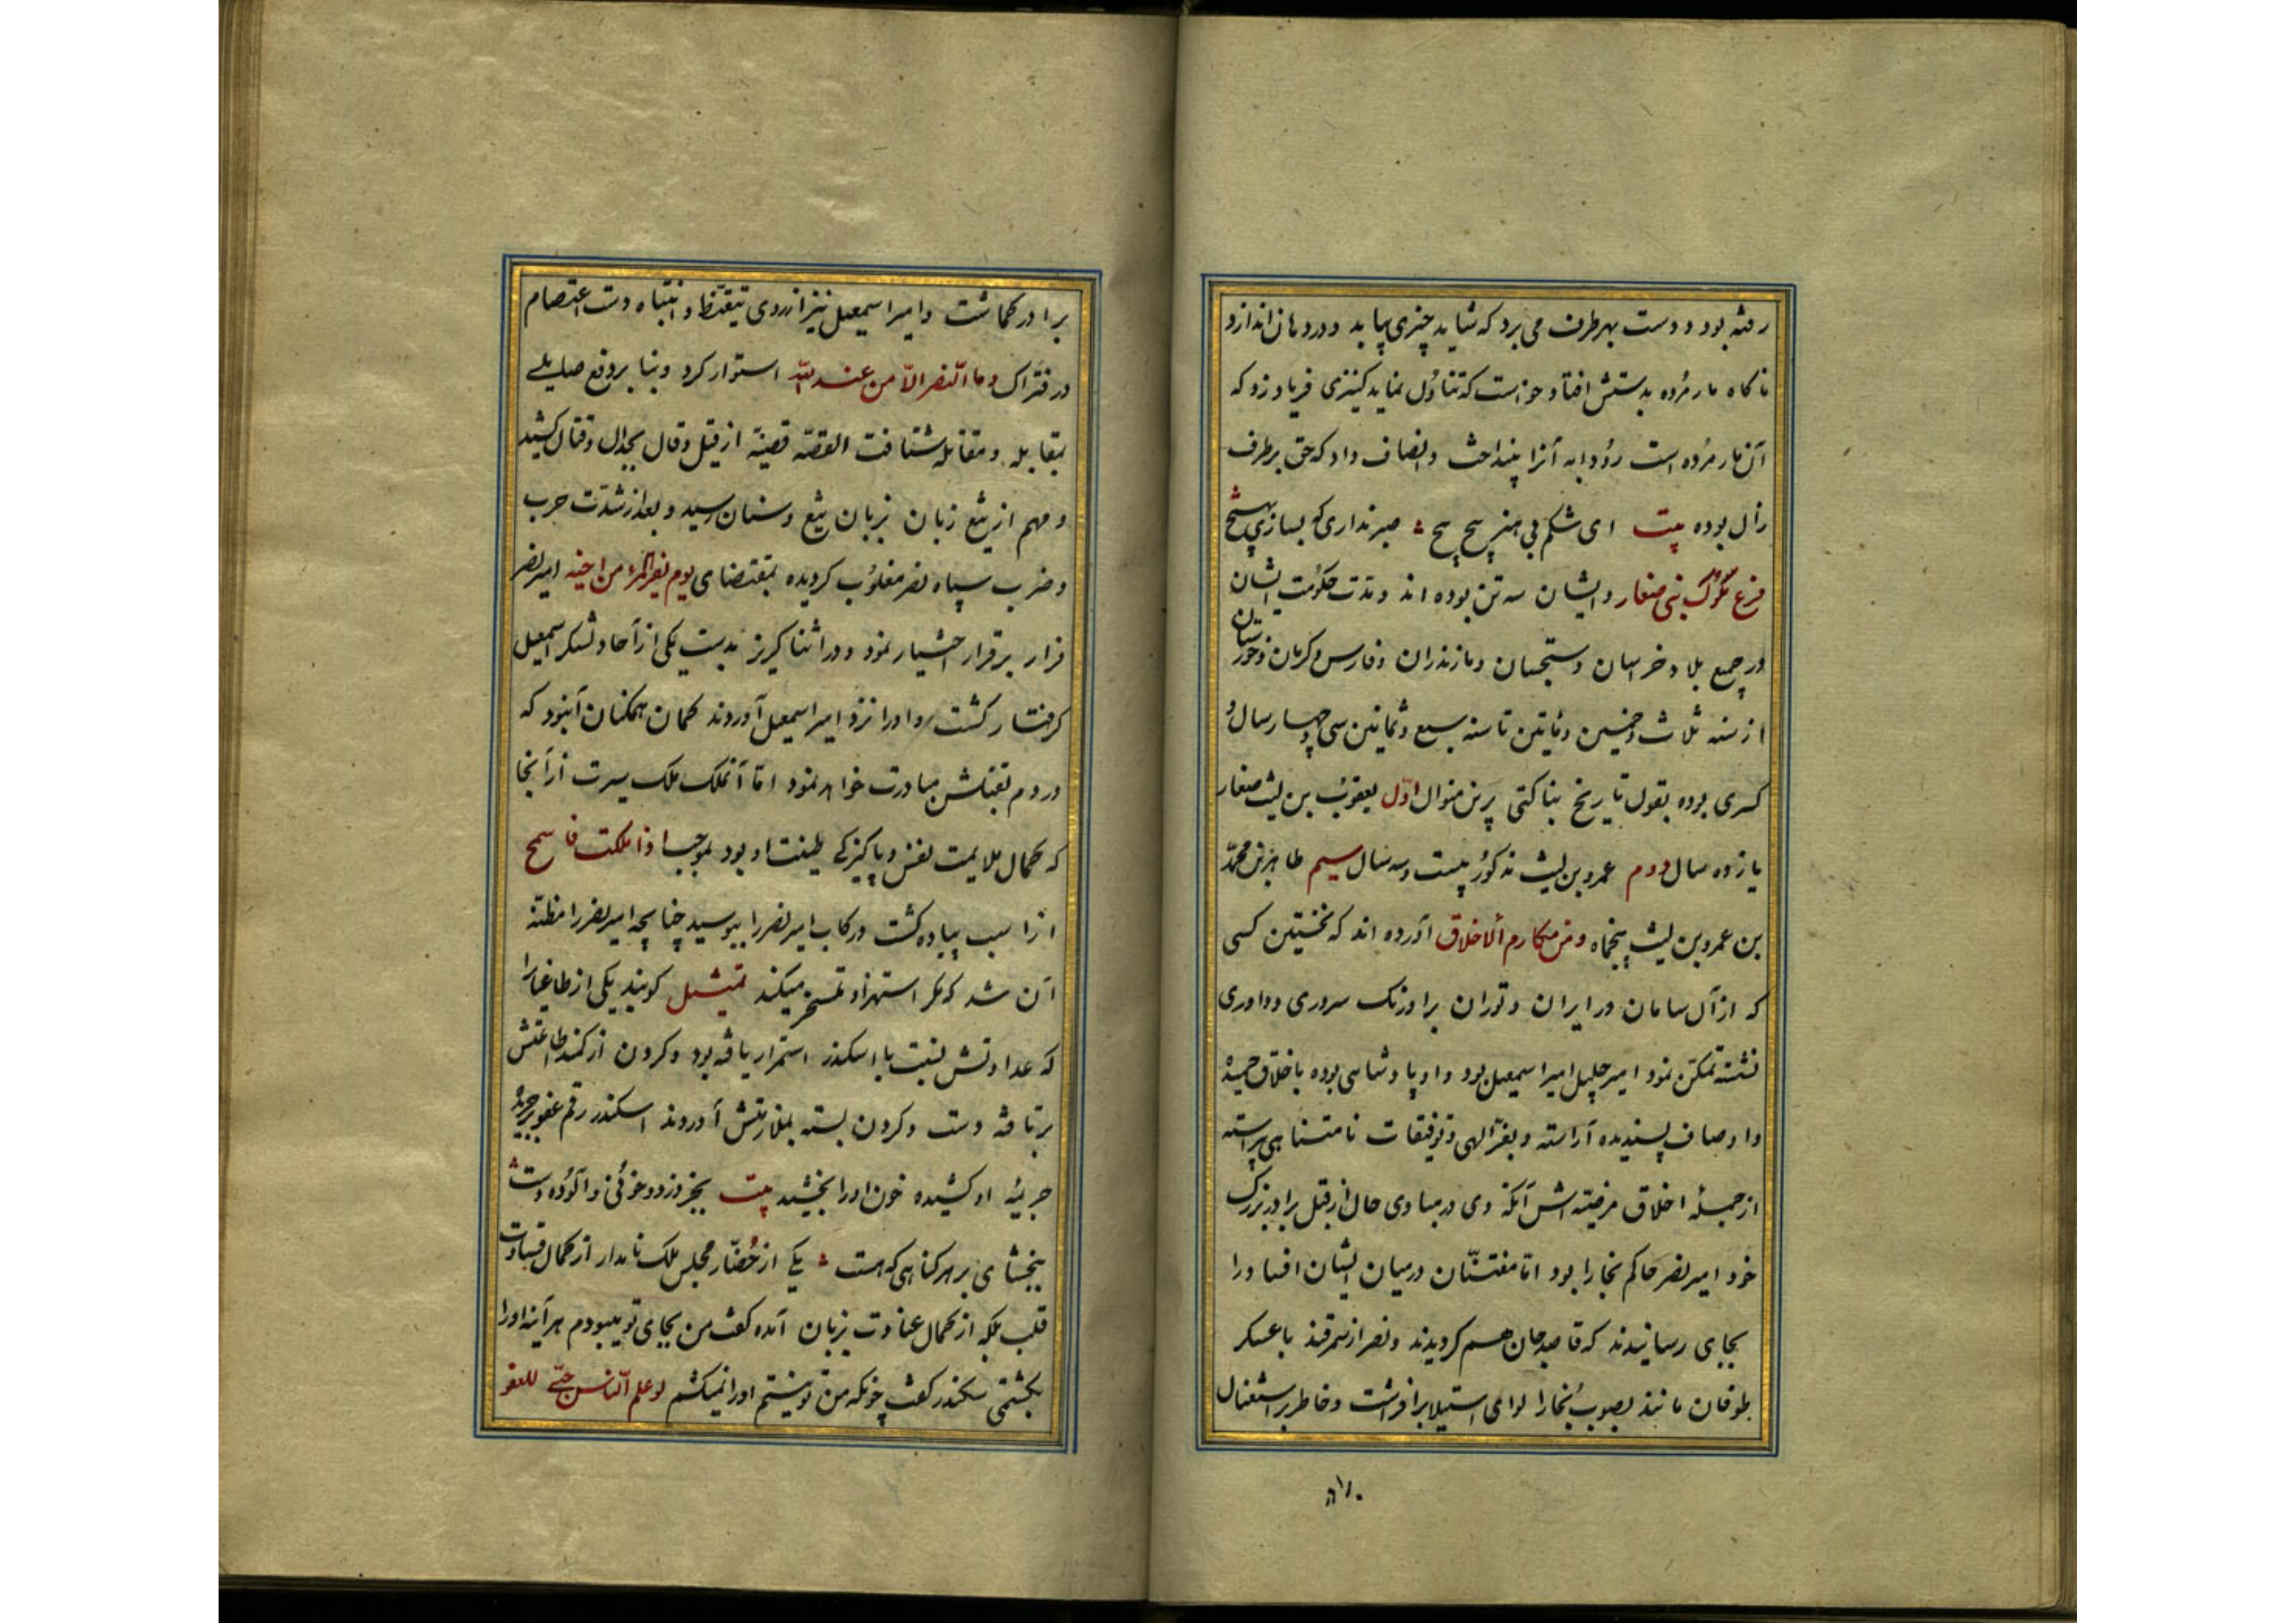 رفته بود و دست بهر طرف می برد که شاید چیزی بیابد و در دهان اندازد
ناکاه مار مُرده بدستش افتاد خواست که تناوُل نماید کنیزی فریاد زد که
آن مار مُرده است رُودابه آنرا بینداخت و انصاف داد که حق بر طرف
زال بوده بیت ای شکم بی هنر پیچ پیچ صبر نداری که بسازی بهیچ
فرع مُلوک بنی صفار و ایشان سه تن بوده اند و مدت حکومت ایشان
در جمیع بلاد خراسان و سیستان و مازندران و فارس و کرمان و خوزستان
از سنه ثلاث و خمسین و مأیتین تا سنه سبع و ثمانین سی و چهار سال و
کسری بوده بقول تاریخ بناکتی برین منوال اوّل یعقوب بن لیث صفار
یازده سال دوم عمرو بن لیث مذکور بیست و سه سال سیم طاهر بن محمّد
بن عمرو بن لیث پنجماه و من مکارم ألاخلاق آورده اند که نخستین کسی
که از آل سامان در ایران و توران بر اورنک سروری و داوری
نشسته تمکّن نمود امیر جلیل امیر اسمعیل بود و او پادشاهی بوده باخلاق حمیده
و اوصاف پسندیده آراسته و بفرّ الهی و توفیقات نامتناهی پیراسته
از جمله اخلاق مرضیّه اش آنکه وی در مبادی حال از قبل برادر بزرک
خود امیر نصر حاکم بخارا بود امّا مفتنّان در میان ایشان افساد را
بجای رسانیدند که قاصد جان هم کردیدند و نصر از سمرقند با عسکر
طوفان مانند بصوب بُخارا لوای استیلا برافراشت و خاطر بر استغنال
برادر کماشت و امیر اسمعیل نیز از روی تیقّظ و انتباه دست اعتصام
در فتراک و ما النّصر الّا من عند الله استوار کرد و بنا بر دفع صایلی
بمقابله و مقاتله شتافت القصّه قضیّه از قیل و قال بجدال و قتال کشید
و مهم از تیغ زبان بزبان تیغ و سنان رسید و بعد از شدّت حرب
و ضرب سپاه نصر مغلوُب کردیده بمقتضای یوم یفرّ المرء من اخیه امیر نصر
فرار بر قرار اختیار نمود و در اثنا کریز بدست یکی از آحاد لشکر اسمعیل
کرفتار کشت و او را نزد امیر اسمعیل آوردند کمان همکنان آنبود که
در دم بقتلش مبادرت خواهد نمود امّا آنملک ملک سیرت از آنجا
که کمال ملایمت نفس و پاکیزکی طینت او بود بموجب اذا ملکت فاسمح
از اسب پیاده کشت و رکاب امیر نصر را ببوسید چنانچه امیر نصر را مظنّه
آن شد که مکر استهزا و تمسخر میکند تمثیل کویند یکی از طاغیان را
که عداوتش نسبت با اسکندر استمرار یافته بود و کردن از کمند طاعتش
برتافته دست و کردن بسته بملازمتش آوردند اسکندر رقم عفو بر جریده
جریمهٔ او کشیده خون او را بخشید بیت بجز دزد و خونی و آلوده دست
ببخشای بر هر کناهی که هست یکی از حُضّار مجلس ملک نامدار از کمال قساوت
قلب بلکه از کمال عناوت بزبان آمده کفت من بجای تو میبودم هر آینه او را
بکشتمی سکندر کفت چونکه من تو نیستم او را نمیکشم لو علم النّاس حبّی للعفو